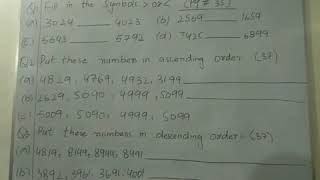 Q1 Fill in the Symbols > or < (Pg # 35)
(a) 3029 ____ 4023 (b) 2569 ____ 1659
(c) 5693 ____ 5792 (d) 7425 ____ 6899
Q2 Put these numbers in ascending order (37)
(a) 4829, 4769, 4932, 3199
(b) 2629, 5090, 4999, 5099
(c) 5009, 5090, 4999, 5099
Q3 Put these numbers in descending order - (37)
(a) 4819, 8149, 8944, 8491
(b) 3892, 3961, 3691, 4001